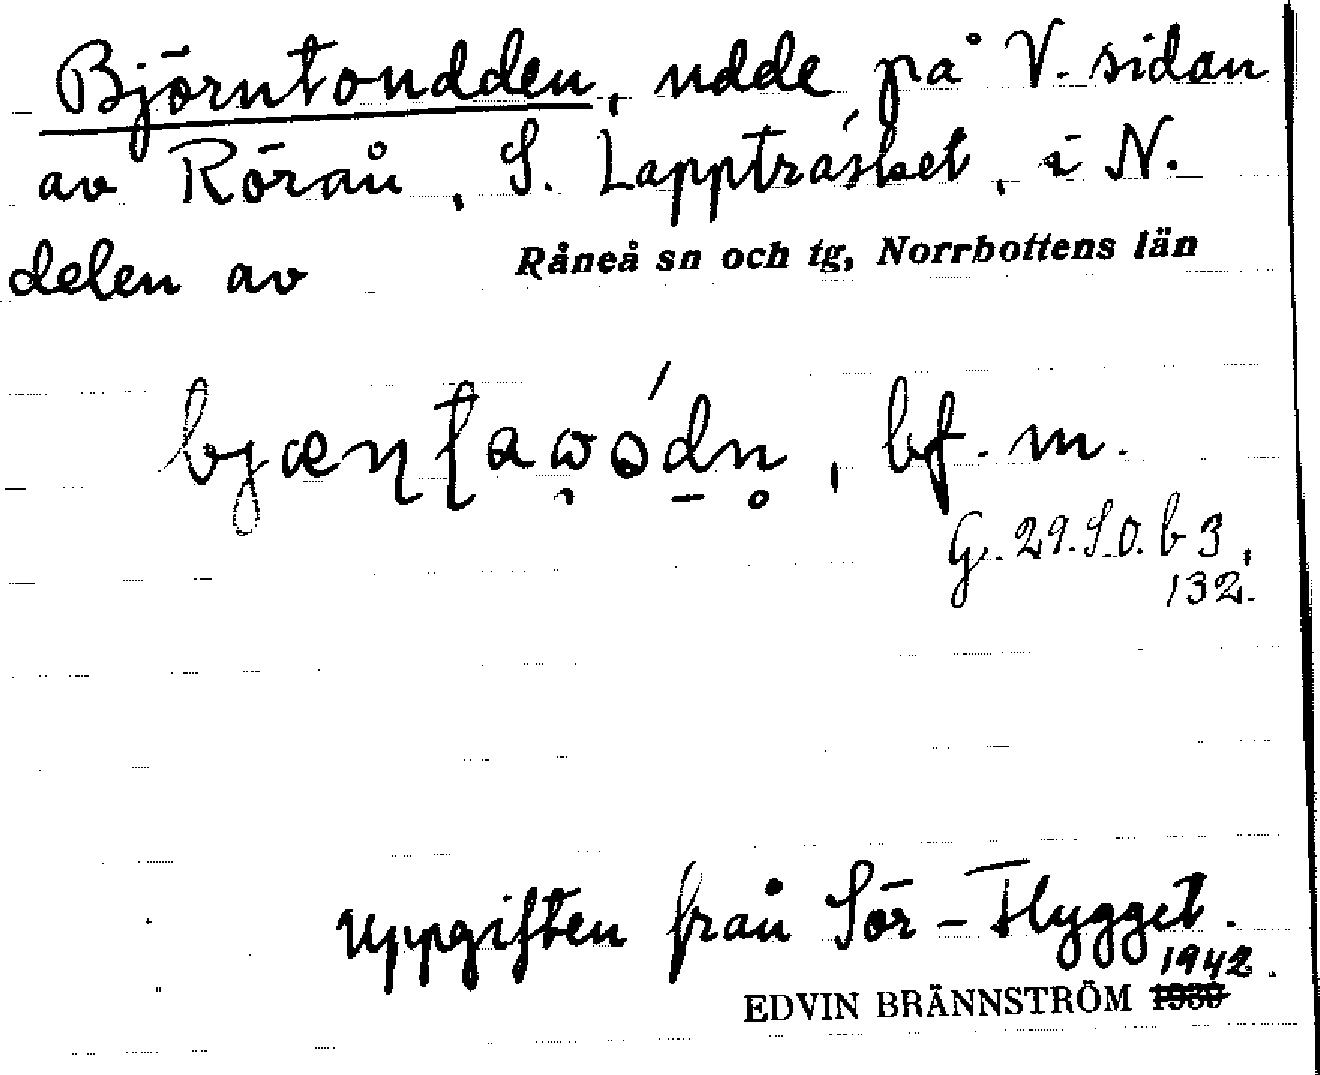 Björntoudden, udde på V. sidan
av Röräu, S. Lappträsket, i N.
delen av Råneå sn och tg, Norrbottens län
bf. m.
G. 29. S.O. b 3,
132.
Uppgiften från Sör-Flygget.
1942.
EDVIN BRÄNNSTRÖM 1930